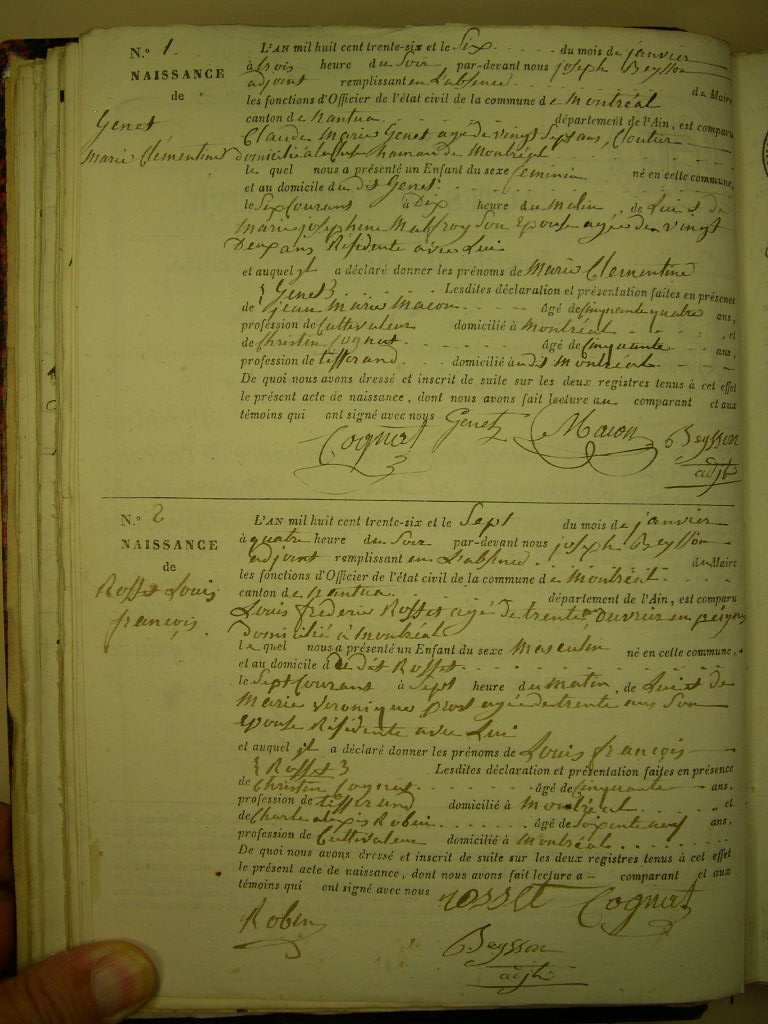 N.° 1
NAISSANCE
de
Genet
Marie Clémentine
L'AN mil huit cent trente-six et le Six du mois de janvier
à trois heure du Soir par-devant nous joseph Beysson
adjoint remplissant en L'absence du Maire
les fonctions d'Officier de l'état civil de la commune de Montréal
canton de Nantua département de l'Ain, est comparu
Claude Marie Genet agé de vingt Sept ans, Cloutier
domicilié à de Montréal
le quel nous a présenté un Enfant du sexe feminin né en cette commune,
et au domicile du dit Genet
le Six Courant à Dix heure du Matin, de Lui et de
Marie josephine Malfroy Son Epouse agée de vingt
Deux ans Résidente avec Lui
et auquel il a déclaré donner les prénoms de Marie Clementine
{ Genet } Lesdites déclaration et présentation faites en présence
de jean Marie Macon âgé de Cinquante quatre ans,
profession de Cultivateur domicilié à Montréal et
de Christin Cognat âgé de Cinquante ans,
profession de tisserand domicilié au dit Montréal
De quoi nous avons dressé et inscrit de suite sur les deux registres tenus à cet effet
le présent acte de naissance, dont nous avons fait lecture au comparant et aux
témoins qui ont signé avec nous Genet Macon Beysson
Cognat adjt
N.° 2
NAISSANCE
de
Rosset Louis
françois
L'AN mil huit cent trente-six et le Sept du mois de janvier
à quatre heure du Soir par-devant nous joseph Beysson
adjoint remplissant en L'absence du Maire
les fonctions d'Officier de l'état civil de la commune de Montréal
canton de Nantua département de l'Ain, est comparu
Louis frederic Rosset agé de trente ouvrier en peignes
domicilié à Montréal
le quel nous a présenté un Enfant du sexe Masculin né en cette commune,
et au domicile du dit Rosset
le Sept Courant à Sept heure du Matin, de Lui et de
Marie Veronique prost agée de trente ans Son
Epouse Résidente avec Lui
et auquel il a déclaré donner les prénoms de Louis françois
{ Rosset } Lesdites déclaration et présentation faites en présence
de Christin Cognat âgé de Cinquante ans.
profession de tisserand domicilié à Montréal et
de Charle alexis Robin âgé de Soixente neuf ans,
profession de Cultivateur domicilié à Montréal
De quoi nous avons dressé et inscrit de suite sur les deux registres tenus à cet effet
le présent acte de naissance, dont nous avons fait lecture a comparant et aux
témoins qui ont signé avec nous rosset Cognat
Robin
Beysson
adjt